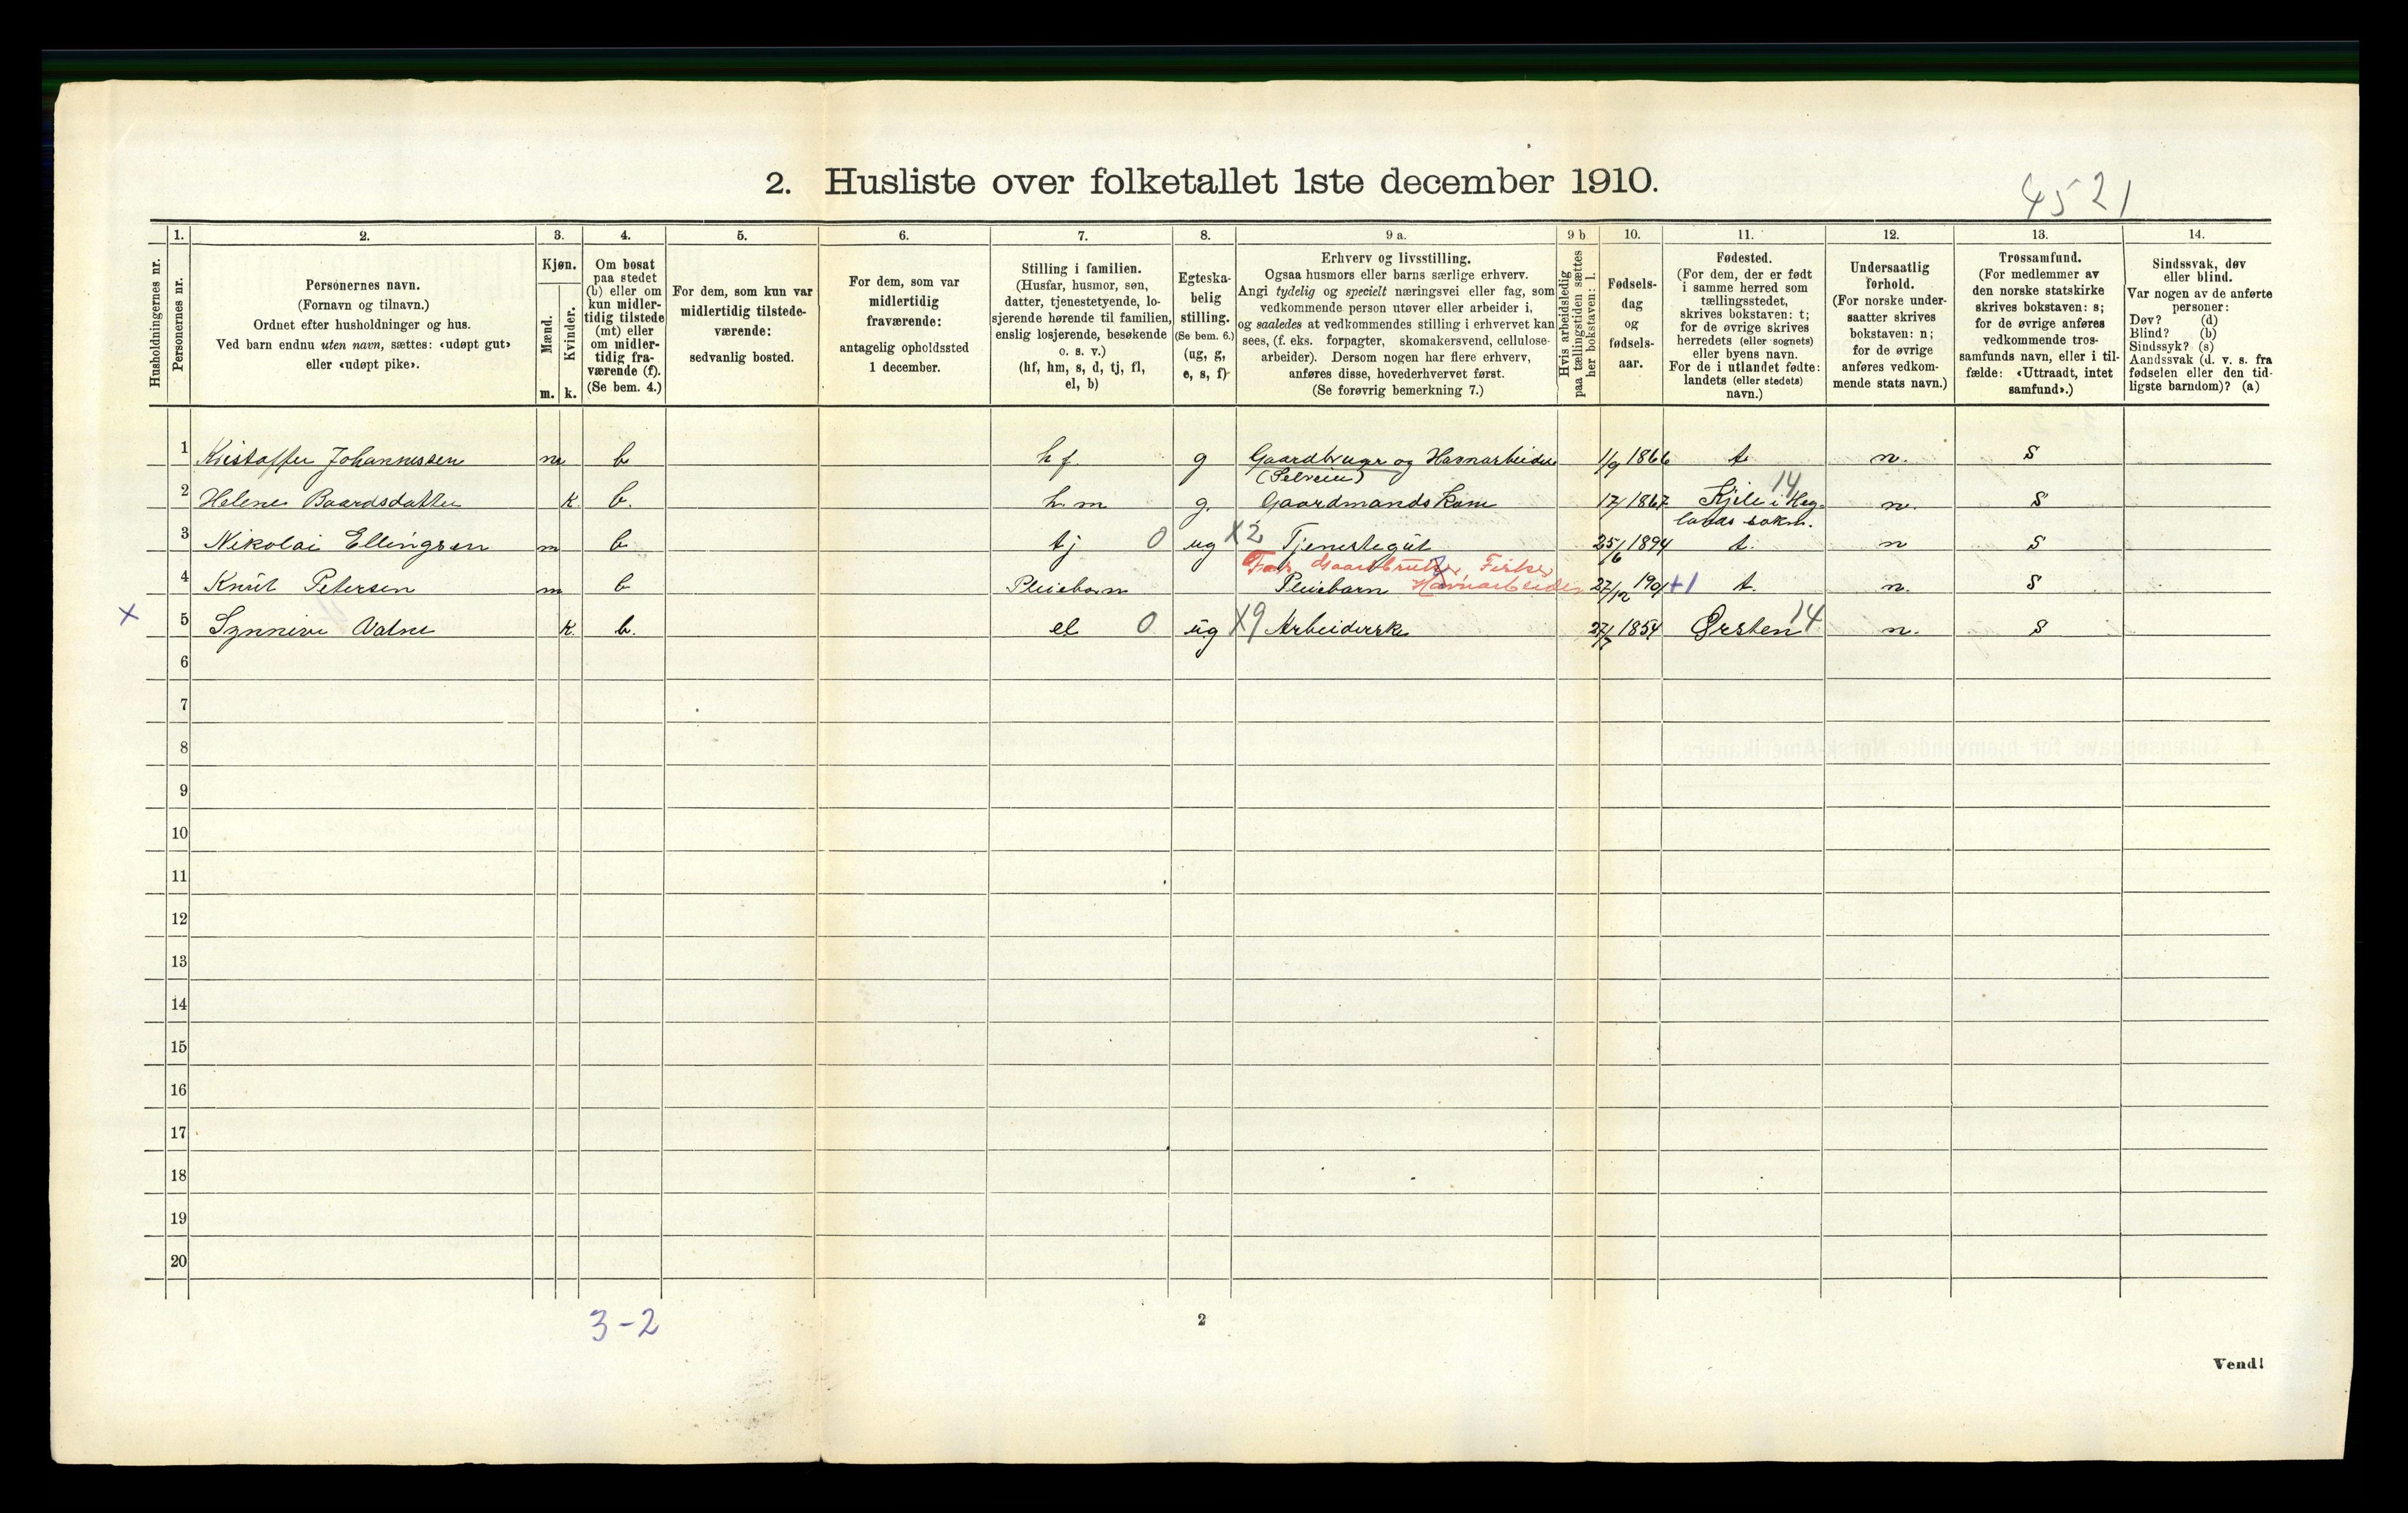 2. Husliste over folketallet 1ste december 1910.
4521
Husholdningernes nr.
1.
Personernes nr.
2.
Personernes navn.
(Fornavn og tilnavn.)
Ordnet efter husholdninger og hus.
Ved barn endnu uten navn, sættes: «udøpt gut»
eller «udøpt pike».
3.
Kjøn.
Mænd.
Kvinder.
m. k.
4.
Om bosat
paa stedet
(b) eller om
kun midler-
tidig tilstede
(mt) eller
om midler-
tidig fra-
værende (f).
(Se bem. 4.)
5.
For dem, som kun var
midlertidig tilstede-
værende:
sedvanlig bosted.
6.
For dem, som var
midlertidig
fraværende:
antagelig opholdssted
1 december.
7.
Stilling i familien.
(Husfar, husmor, søn,
datter, tjenestetyende, lo-
sjerende hørende til familien,
enslig losjerende, besøkende
o. s. v.)
(hf, hm, s, d, tj, fl,
el, b)
8.
Egteska-
belig
stilling.
(Se bem. 6.)
(ug, g,
e, s, f)
9 a.
Erhverv og livsstilling.
Ogsaa husmors eller barns særlige erhverv.
Angi tydelig og specielt næringsvei eller fag, som
vedkommende person utøver eller arbeider i,
og saaledes at vedkommendes stilling i erhvervet kan
sees, (f. eks. forpagter, skomakersvend, cellulose-
arbeider). Dersom nogen har flere erhverv,
anføres disse, hovederhvervet først.
(Se forøvrig bemerkning 7.)
9 b
Hvis arbeidsledig
paa tællingstiden sættes
her bokstaven: l.
10.
Fødsels-
dag
og
fødsels-
aar.
11.
Fødested.
(For dem, der er født
i samme herred som
tællingsstedet,
skrives bokstaven: t;
for de øvrige skrives
herredets (eller sognets)
eller byens navn.
For de i utlandet fødte:
landets (eller stedets)
navn.)
12.
Undersaatlig
forhold.
(For norske under-
saatter skrives
bokstaven: n;
for de øvrige
anføres vedkom-
mende stats navn.)
13.
Trossamfund.
(For medlemmer av
den norske statskirke
skrives bokstaven: s;
for de øvrige anføres
vedkommende tros-
samfunds navn, eller i til-
fælde: «Uttraadt, intet
samfund».)
14.
Sindssvak, døv
eller blind.
Var nogen av de anførte
personer:
Døv? (d)
Blind? (b)
Sindssyk? (s)
Aandssvak (d. v. s. fra
fødselen eller den tid-
ligste barndom)? (a)
1 Kristoffer Johannessen m b hf g Gaardbruger og Havnarbeider 1/9 1866 t n. s
(Selveier)
2 Helene Baardsdatter k b. hm g. Gaardmandskone 1867 14 Kjile i Heg- n. s
lands sokn.
3 Nikolai Ellingsen m b tj 0 ug X2 Tjenestegut 25/6 1894 t. n s
Far Gaardbruker, Fisker,
Havnarbeider
4 Knut Petersen m b Pleiebarn Pleiebarn 27/12 1901 +1 t. n. s
X 5 Synneve Vatne k b. el 0 ug X9 Arbeiderske 27/7 1854 Ørsten 14 n. s
6
7
8
9
10
11
12
13
14
15
16
17
18
19
20
3-2
2
Vend!